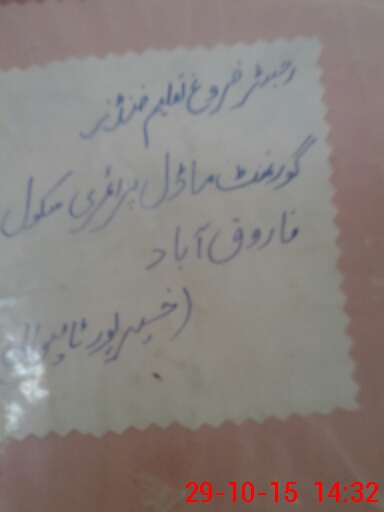 رجسٹر فروغ تعلیم فنڈز
گورنمنٹ ماڈل پرائمری سکول
فاروق آباد
(خیرپور ٹامیوالی
29-10-15 14:32